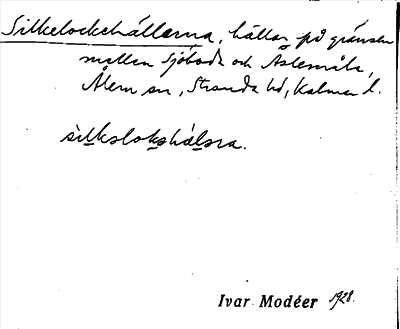 Silkelockehällerna, hällar på gränsen
mellan Sjöboda och Astemåla,
Ålem sn, Stranda hd, Kalmar l.
silkslokshälsra.
Ivar Modéer 1928.